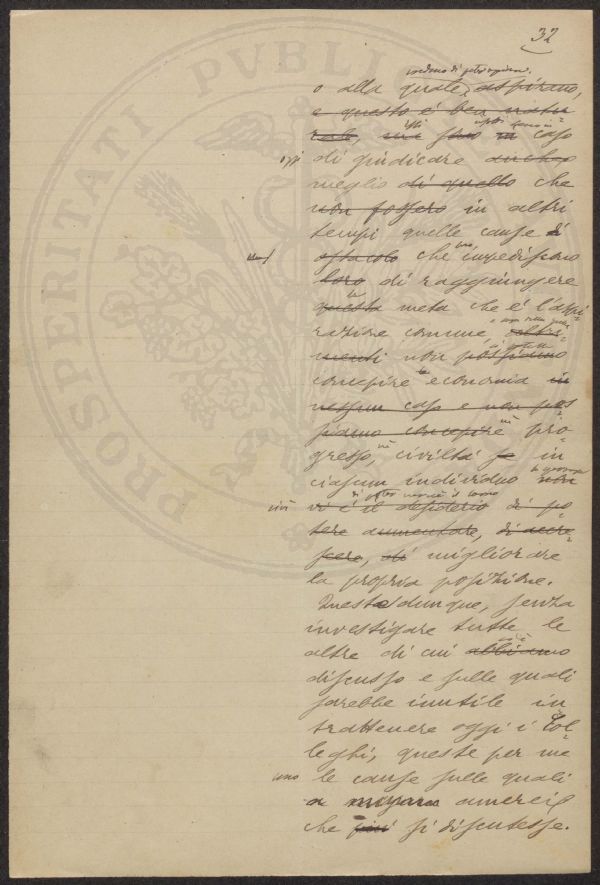 32
o alla quale aspirano,
e questo è ben natu
rale, ma sono in caso
oggi di giudicare anche
meglio di quello che
non fossero in altri
tempi quelle cause di
ostacolo che impediscono
loro di raggiungere
questa meta che è l'aspi
razione comune, altri=
menti non possiamo
concepire economia in
nessun caso e non pos
siamo concepire pro=
gresso, nè civiltà se in
ciascun individuo non
vi è il desiderio di po=
tere aumentare, di accre=
scere, di migliorare
la propria posizione.
Queste dunque, senza
investigare tutte le
altre di cui abbiamo
discusso e sulle quali
sarebbe inutile in
trattenere oggi i Col=
leghi, queste per me
le cause sulle quali
amerei
che più si discutesse.
PROSPERITATI PVBLIC